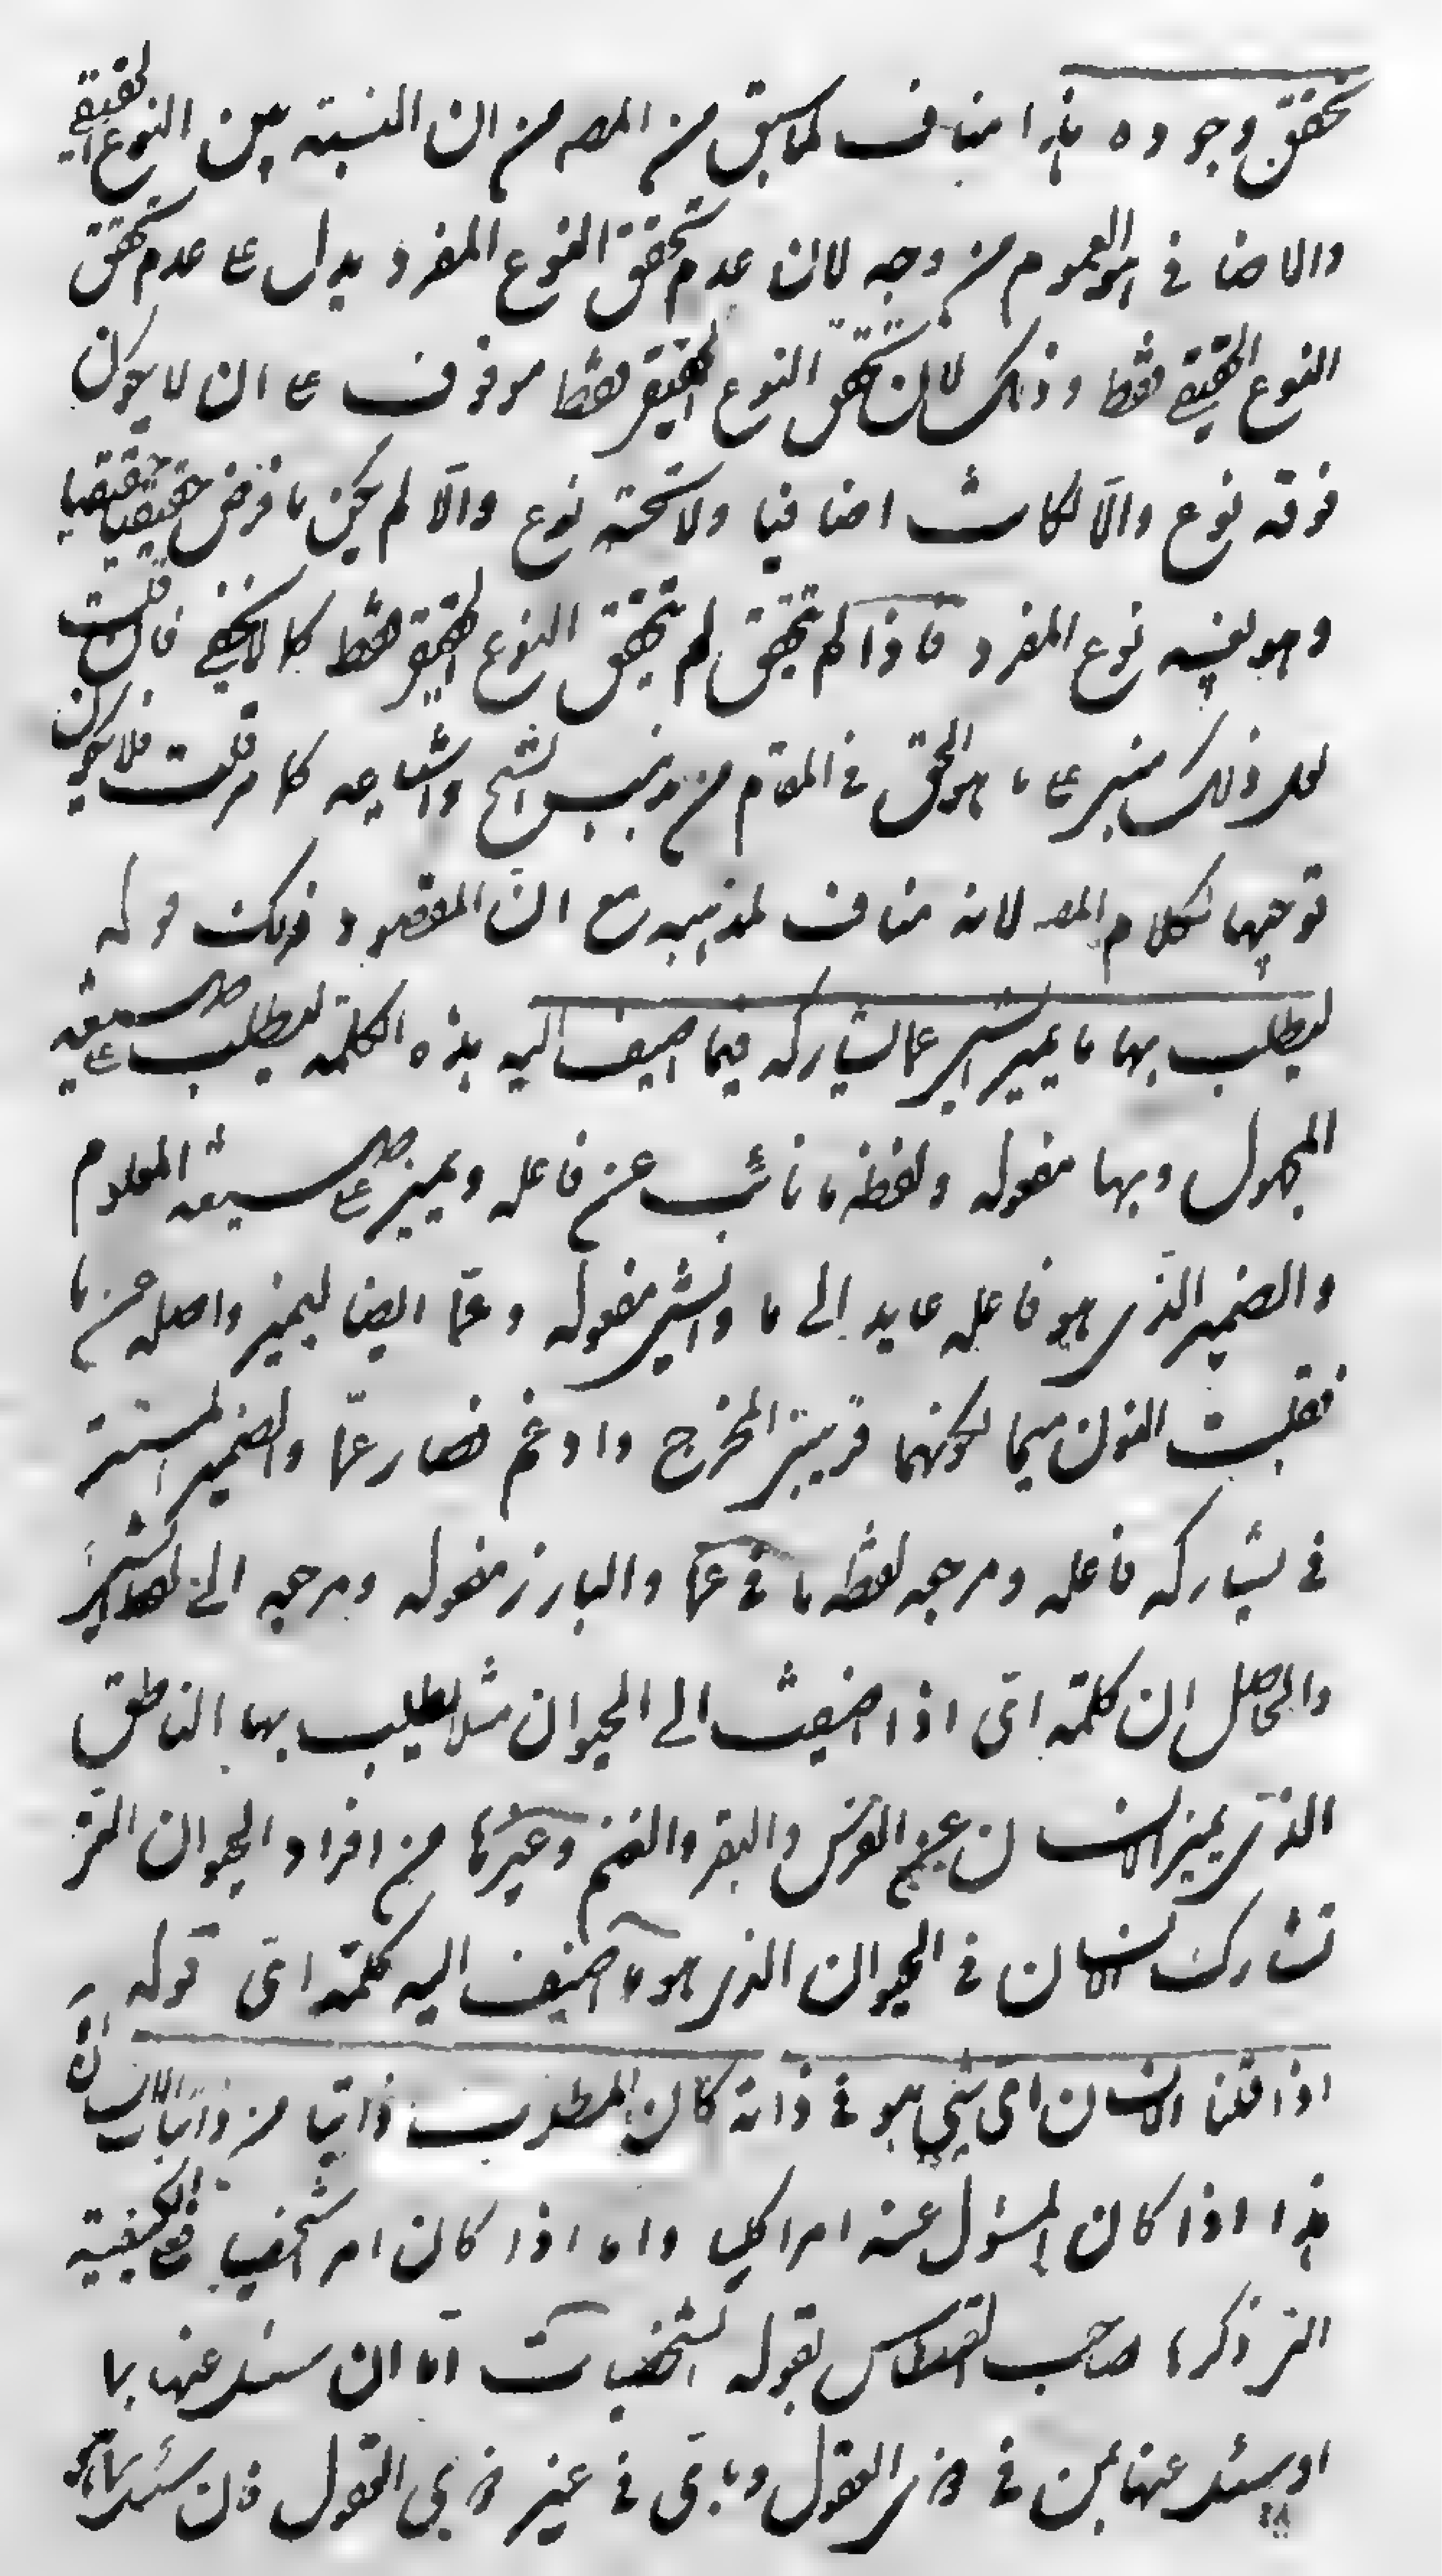 تحقق وجوده هذا مناف لما سبق من المصر من ان النسبة بين النوع الحقيقي
والاضافي هو العموم من وجه لان عدم تحقق النوع المفرد يدل على عدم تحقق
النوع الحقيقي فقط وذلك لان تحقق النوع الحقيقي فقط موقوف على ان لا يكون
فوقه نوع والّا لكان اضافيا ولا تحته نوع والّا لم يكن ما فرض حقيقيا حقيقيا
وهو بعينه نوع المفرد فاذا لم تحقق لم تحقق النوع الحقيقي فقط كما لا يخفى فان قلت
لعل ذلك مبني على ما هو الحق في المقام من مذهب الشيخ واشياعه كما مر قلت فلا يكون
توجيها لكلام المصر لانه مناف لمذهبه مع انّ المقصود ذلك قوله
ليطلب بها ما يميز الشيء عما يشاركه فيما اضيف اليه هذه الكلمة ليطلب على صيغة
المجهول وبها مفعوله ولفظة ما نائب عن فاعله ويميز على صيغة المعلوم
والضمير الذي هو فاعله عايد الى ما والشيء مفعوله وعمّا ايضا ليميز واصله عن ما
فقلبت النون ميما لكونهما قريبتي المخرج وادغم فصار عمّا والضمير المستتر
في يشاركه فاعله ومرجعه لفظه ما في عما والبارز مفعوله ومرجعه الى لفظ الشيء
والحاصل ان كلمة ايّ اذا اضيفت الى الحيوان مثلا يطلب بها الناطق
الذي يميز الانسان عن الفرس والبقر والغنم وغيرها من افراد الحيوان التي
تشارك الانسان في الحيوان الذي هو ما اضيف اليه كلمة ايّ قوله
اذا قلنا الانسان اي شيء هو في ذاته كان المطلوب ذاتيا من ذاتيات الانسان
هذا اذا كان المسؤل عنه امرا كلي واما اذا كان امر شخصيا فعلى الكيفية
التي ذكرها صاحب القسطاس بقوله الشخصيات امّا ان يسئل عنها بما
او يسئل عنها بمن في ذوي العقول وباي في غير ذوي العقول فان سئل بما هو